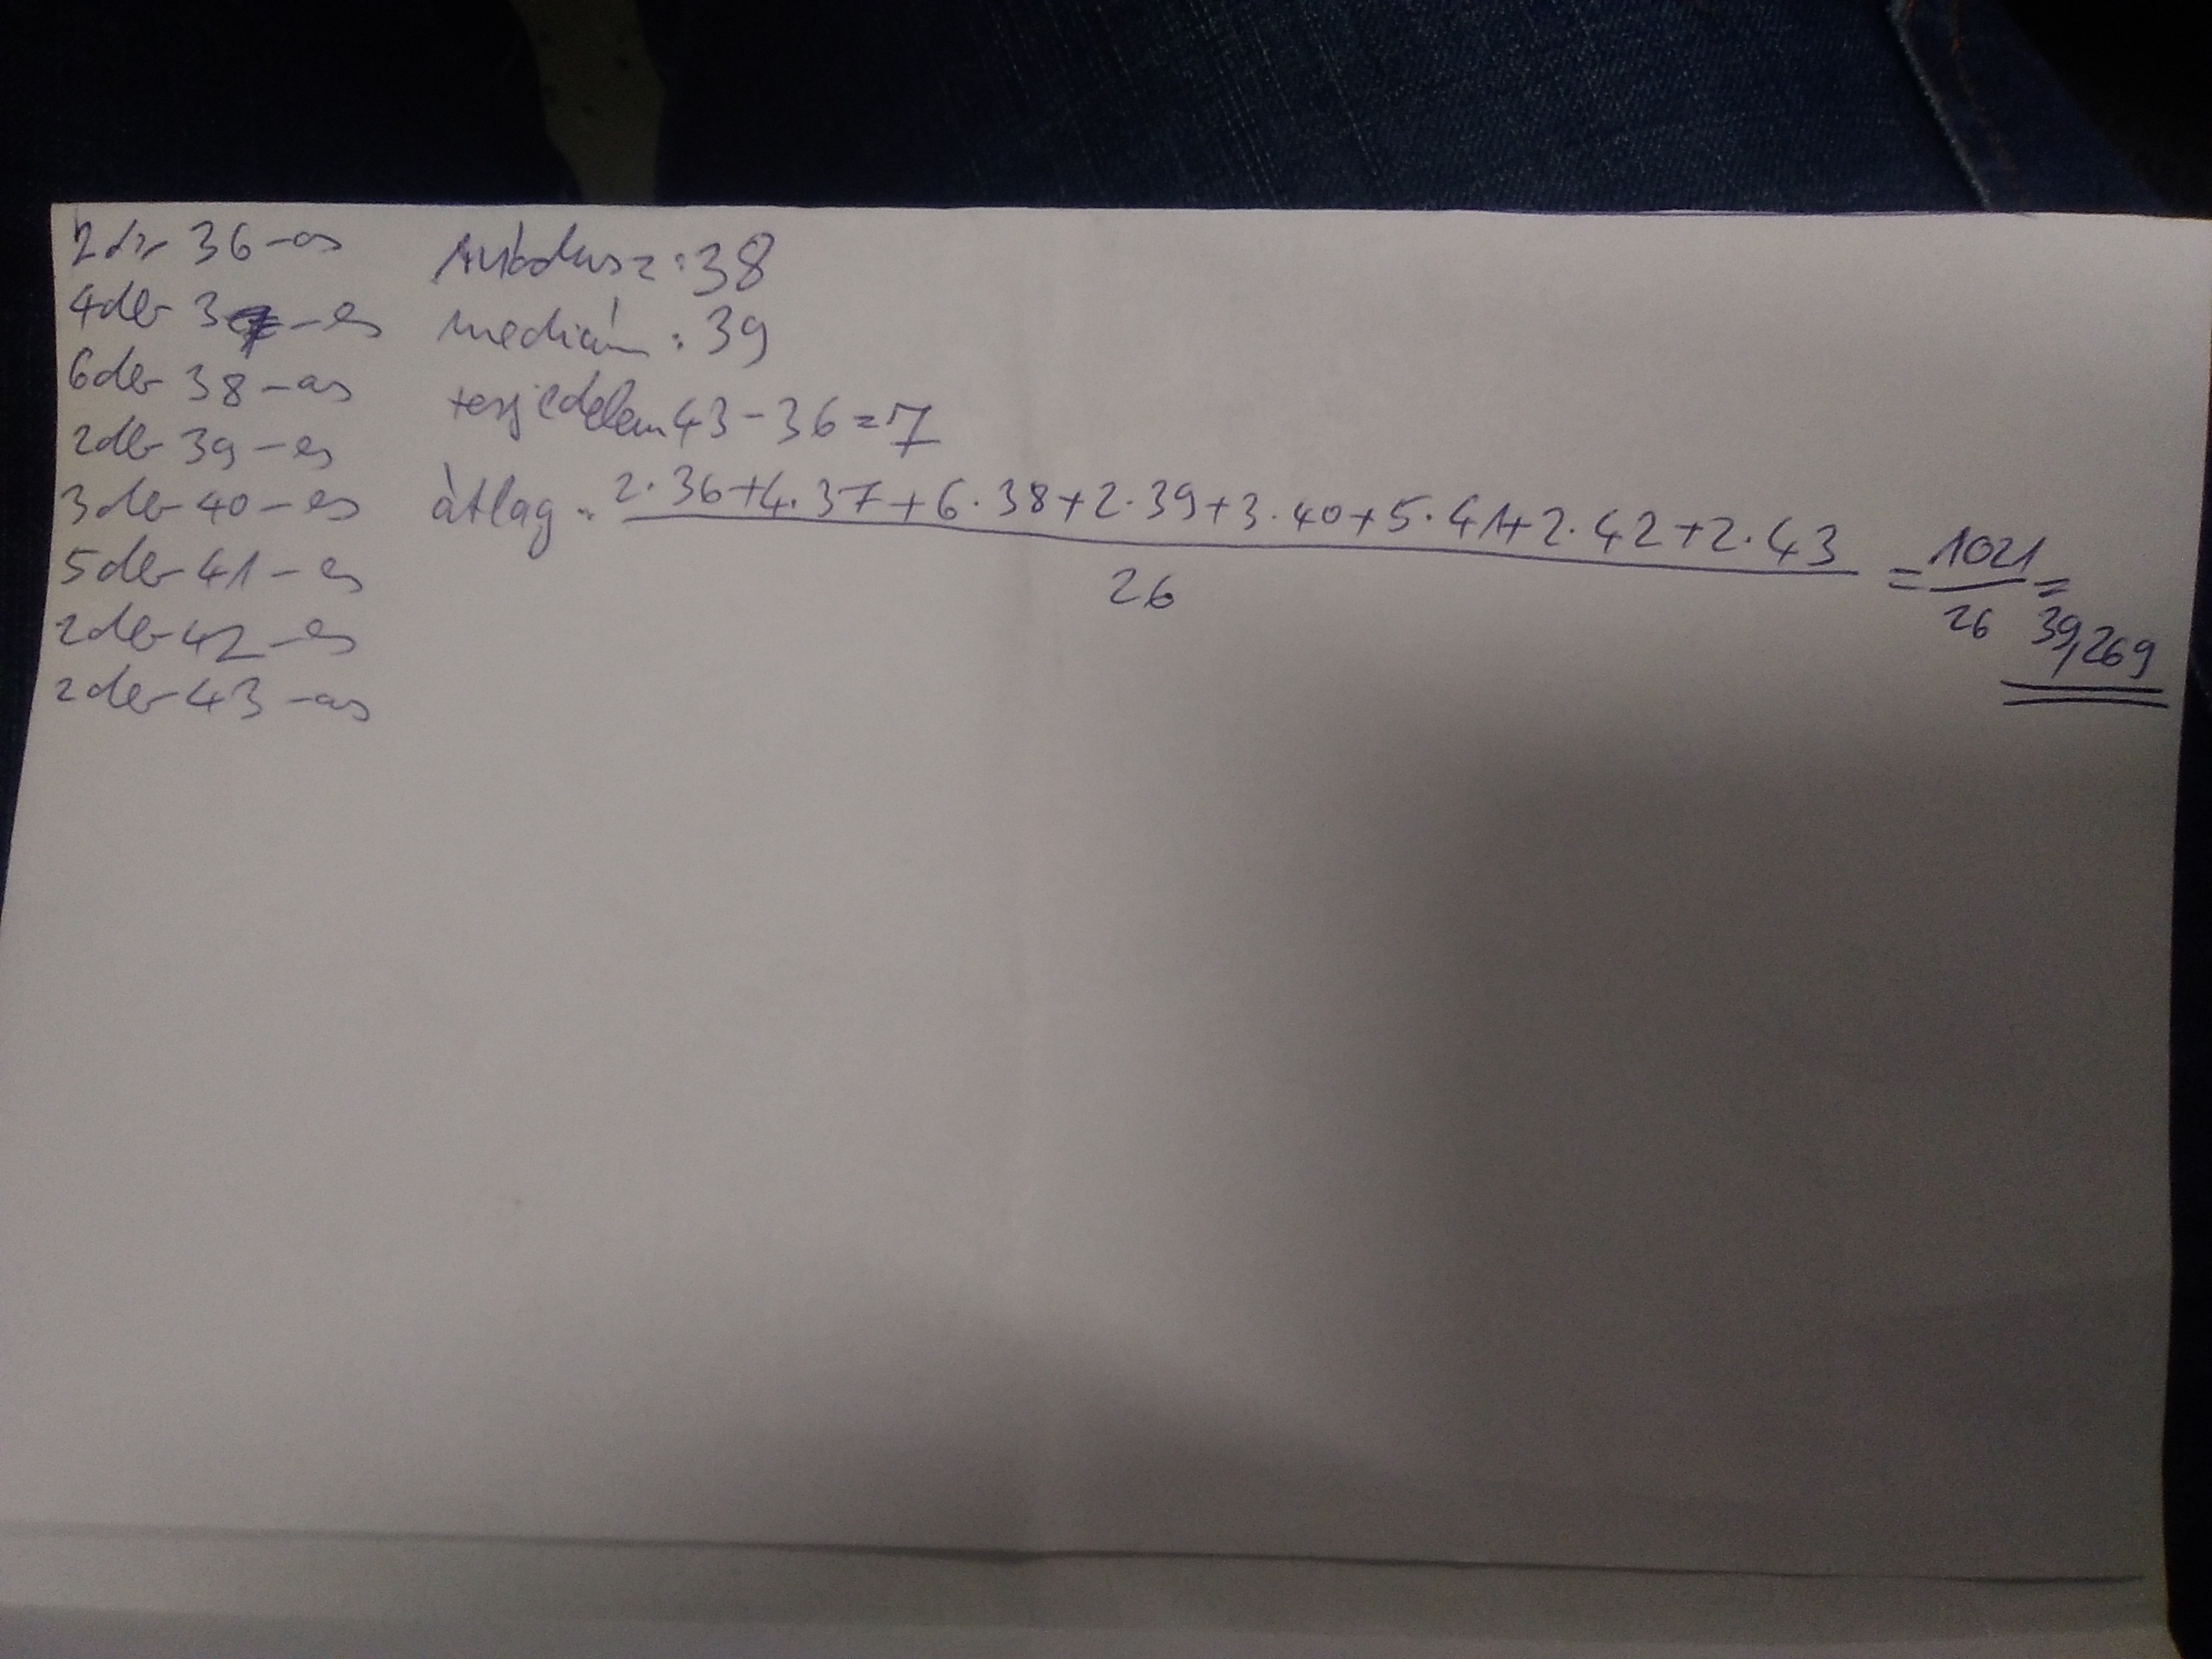 2db 36-os
4db 37-es
6db 38-as
2db 39-es
3db 40-es
5db 41-es
2db 42-es
2db 43-as
módusz: 38
medián: 39
terjedelem 43-36=7
átlag = 2·36+4·37+6·38+2·39+3·40+5·41+2·42+2·43
26
= 1021
26
= 39,269